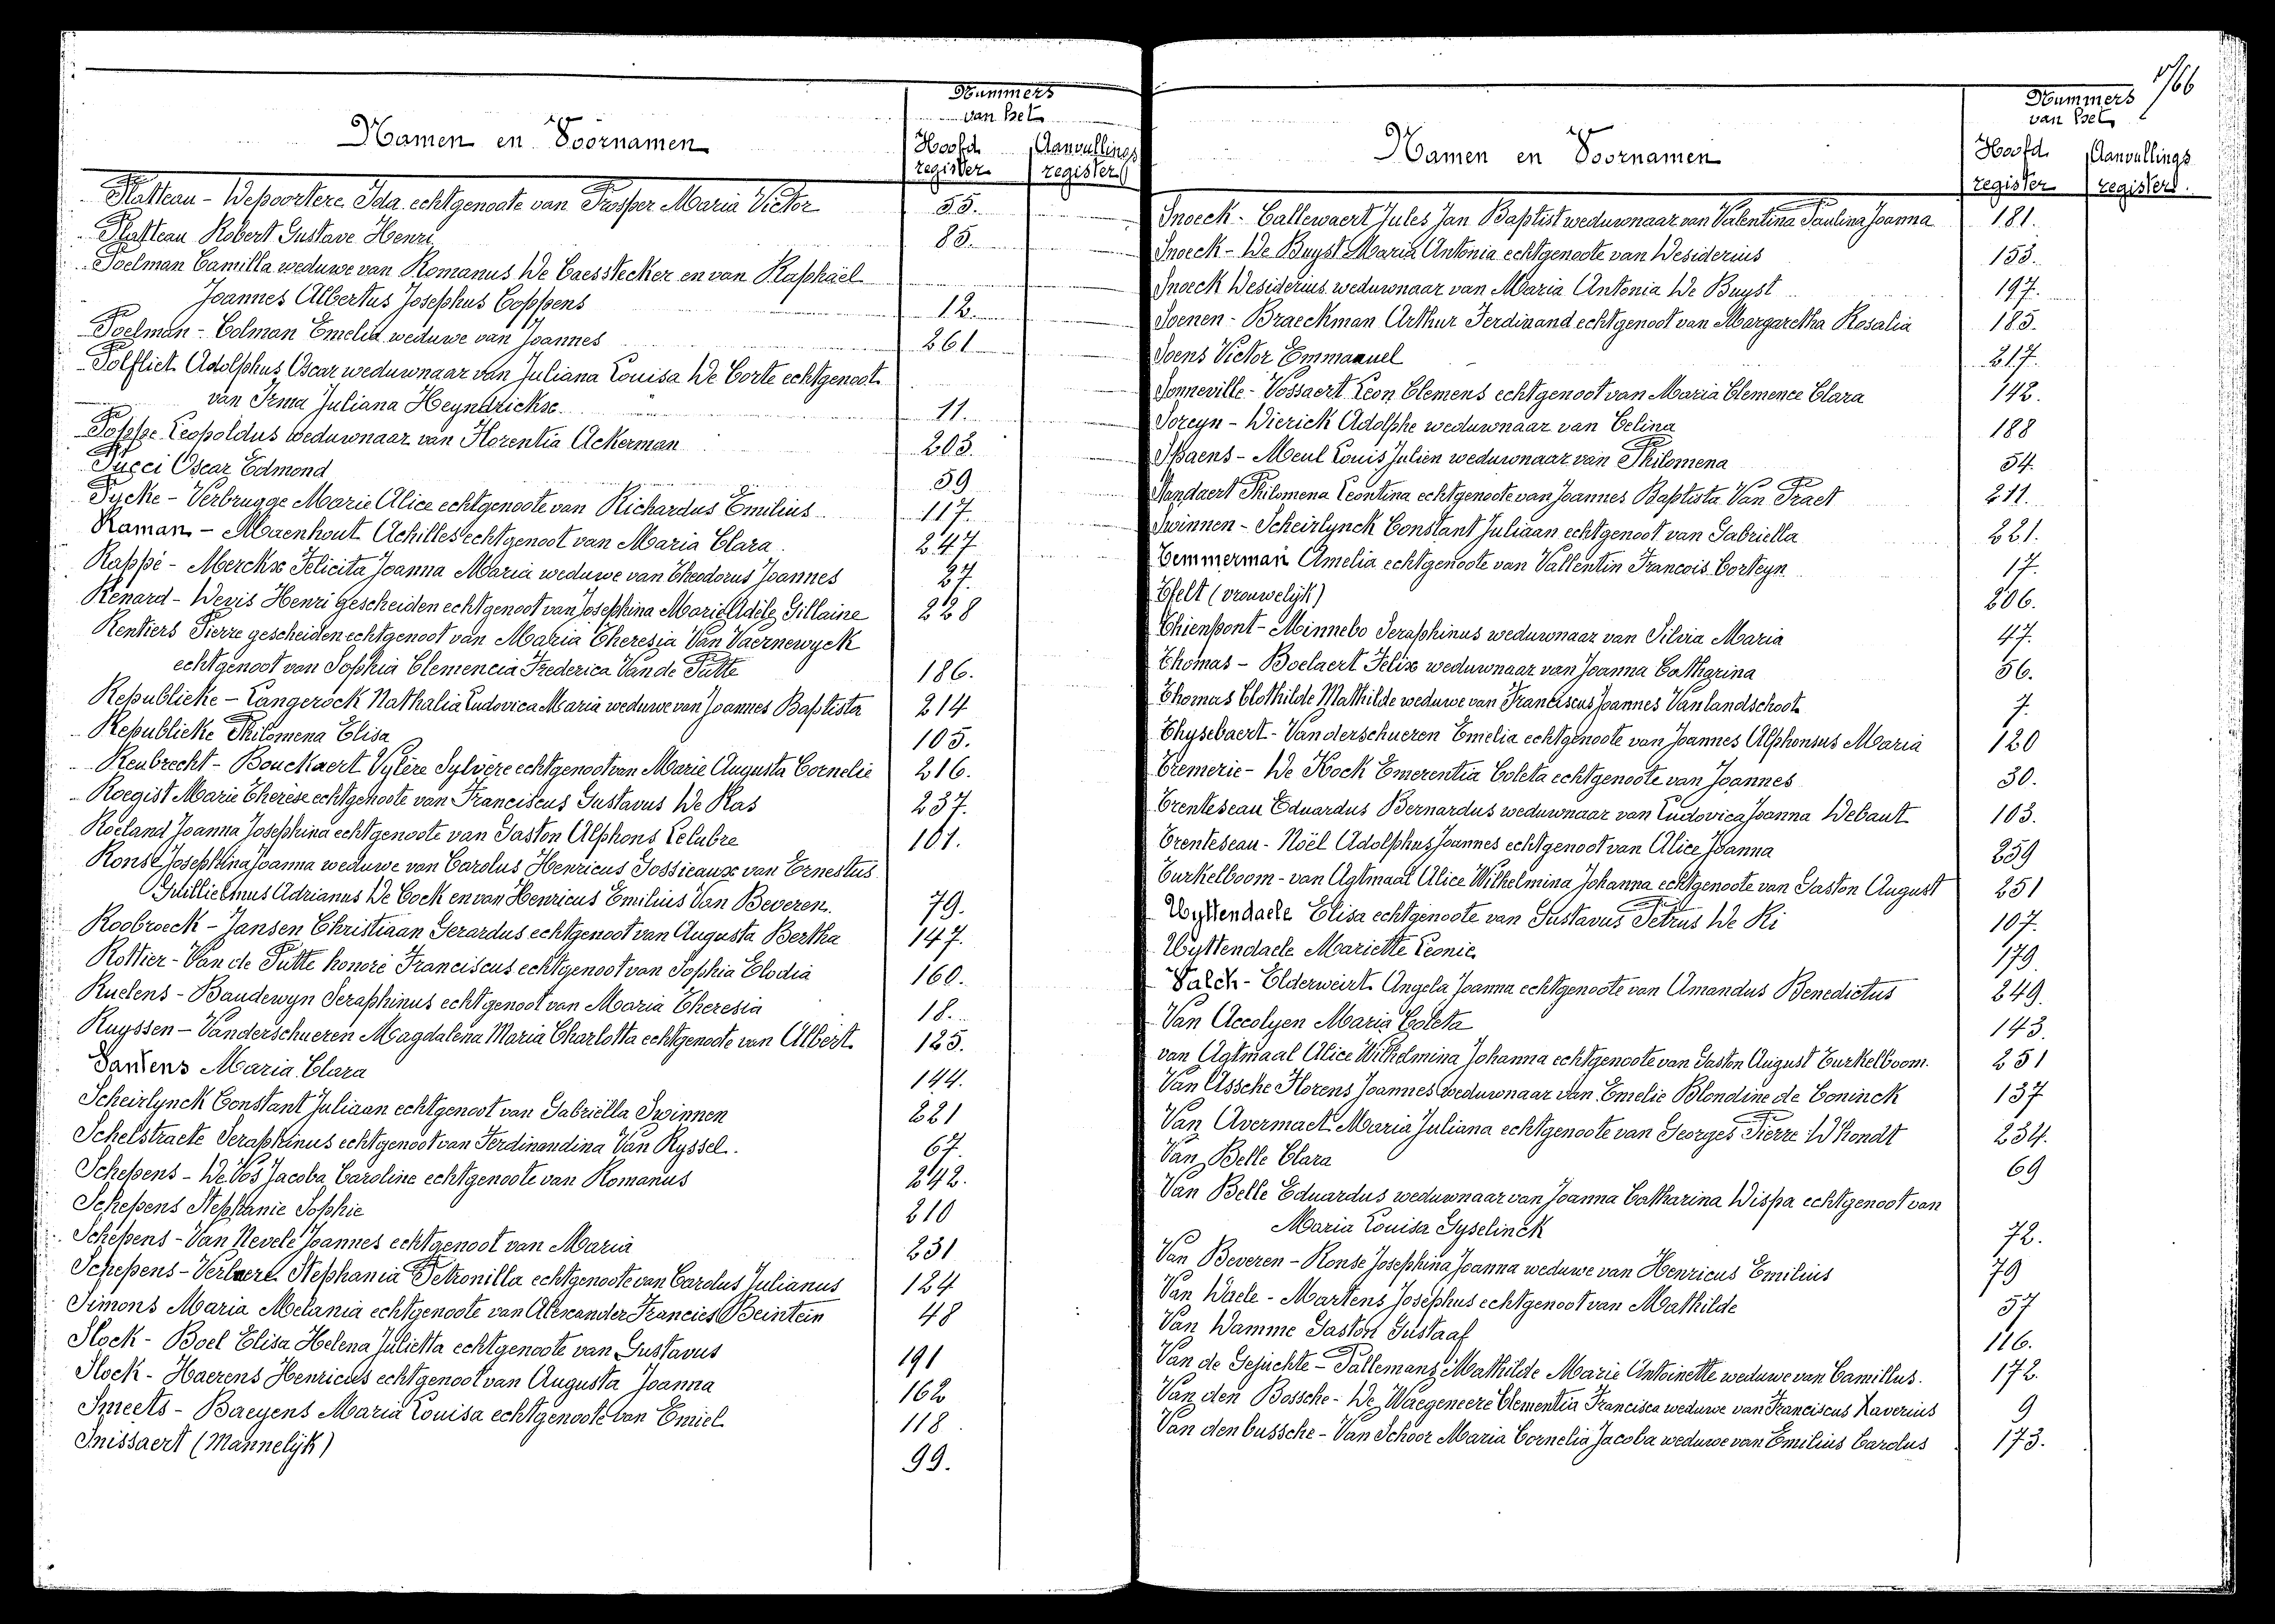 Nummers
van het
Namen en Voornamen
Hoofd
register
Aanvullings
register
Platteau - Depoortere Ida echtgenoote van Prosper Maria Victor 55.
Platteau Robert Gustave Henri 85.
Poelman Camilla weduwe van Romanus De Caesstecker en van Raphaël
Joannes Albertus Josephus Coppens 12.
Poelman - Colman Emelia weduwe van Joannes 261
Polfliet Adolphus Oscar weduwnaar van Juliana Louisa De Corte echtgenoot
van Irma Juliana Heyndrickx 11.
Poppe Leopoldus weduwnaar van Florentia Ackerman 203
Pucci Oscar Edmond 59
Pycke - Verbrugge Marie Alice echtgenoote van Richardus Emilius 117.
Raman - Maenhout Achilles echtgenoot van Maria Clara 247
Rappé - Merckx Felicita Joanna Maria weduwe van Theodorus Joannes 27.
Renard - Devis Henri gescheiden echtgenoot van Josephina Marie Adèle Gillaine 228
Rentiers Pierre gescheiden echtgenoot van Maria Theresia Van Vaernewyck
echtgenoot van Sophia Clemencia Frederica Van de Putte 186.
Republieke - Langerock Nathalia Ludovica Maria weduwe van Joannes Baptista 214
Republieke Philomena Elisa 105.
Reubrecht - Bouckaert Vylère Sylvère echtgenoot van Marie Augusta Cornelie 216.
Roegist Marie Therèse echtgenoote van Franciscus Gustavus De Ras 237.
Roeland Joanna Josephina echtgenoote van Gaston Alphons Lelubre 101.
Ronse Josephina Joanna weduwe van Carolus Henricus Gossieaux van Ernestus
Guillielmus Adrianus De Cock en van Henricus Emilius Van Beveren. 79.
Roobroeck - Jansen Christiaan Gerardus echtgenoot van Augusta Bertha 147.
Rottier - Van de Putte honoré Franciscus echtgenoot van Sophia Elodia 160.
Ruelens - Baudewyn Seraphinus echtgenoot van Maria Theresia 18.
Ruyssen - Vanderschueren Magdalena Maria Charlotta echtgenoote van Albert 125.
Santens Maria Clara 144.
Scheirlynck Constant Juliaan echtgenoot van Gabriella Swinnen 221
Schelstraete Seraphinus echtgenoot van Ferdinandina Van Ryssel. 67.
Schepens - De Vos Jacoba Caroline echtgenoote van Romanus 242.
Schepens Stephanie Sophie 210
Schepens - Van Nevele Joannes echtgenoot van Maria 231
Schepens - Verlaere Stephania Petronilla echtgenoote van Carolus Julianus 124
Simons Maria Melania echtgenoote van Alexander Francies Beintein 48
Slock - Boel Elisa Helena Julietta echtgenoote van Gustavus 191
Slock - Haerens Henricus echtgenoot van Augusta Joanna 162
Smeets - Baeyens Maria Louisa echtgenoote van Emiel 118
Snissaert (Mannelijk) 99.
Nummers
van het
Namen en Voornamen
Hoofd
register
Aanvullings
register
Snoeck - Callewaert Jules Jan Baptist weduwnaar van Valentina Paulina Joanna 181.
Snoeck - De Buyst Maria Antonia echtgenoote van Desiderius 153.
Snoeck Desiderius weduwnaar van Maria Antonia De Buyst 197.
Soenen - Braeckman Arthur Ferdinand echtgenoot van Margaretha Rosalia 185.
Soens Victor Emmanuel 217.
Sonneville - Vossaert Leon Clemens echtgenoot van Maria Clemence Clara 142.
Soreyn - Dierick Adolphe weduwnaar van Celina 188
Spaens - Meul Louis Julien weduwnaar van Philomena 54.
Standaert Philomena Leontina echtgenoote van Joannes Baptista Van Praet 211.
Swinnen - Scheirlynck Constant Juliaan echtgenoot van Gabriella 221.
Temmerman Amelia echtgenoote van Vallentin Francois Corteyn 17.
Tfelt (vrouwelijk) 206.
Thienpont - Minnebo Seraphinus weduwnaar van Silvia Maria 47.
Thomas - Boelaert Felix weduwnaar van Joanna Catharina 56.
Thomas Clothilde Mathilde weduwe van Franciscus Joannes Vanlandschoot 7.
Thysebaert - Vanderschueren Emelia echtgenoote van Joannes Alphonsus Maria 120
Tremerie - De Kock Emerentia Coleta echtgenoote van Joannes 30.
Trenteseau Eduardus Bernardus weduwnaar van Ludovica Joanna Debaut 103.
Trenteseau - Noël Adolphus Joannes echtgenoot van Alice Joanna 259
Turkelboom - van Agtmaal Alice Wilhelmina Johanna echtgenoote van Gaston August 251
Uyttendaele Elisa echtgenoote van Gustavus Petrus De Ri 107.
Uyttendaele Mariette Leonie 179.
Valck - Elderweirt Angela Joanna echtgenoote van Amandus Benedictus 249.
Van Accolyen Maria Coleta 143.
van Agtmaal Alice Wilhelmina Johanna echtgenoote van Gaston August Turkelboom. 251
Van Assche Florens Joannes weduwnaar van Emelie Blondine de Coninck 137
Van Avermaet Maria Juliana echtgenoote van Georges Pierre D'hondt 234.
Van Belle Clara 69
Van Belle Eduardus weduwnaar van Joanna Catharina Dispa echtgenoot van
Maria Louisa Gyselinck 72.
Van Beveren - Ronse Josephina Joanna weduwe van Henricus Emilius 79
Van Daele - Martens Josephus echtgenoot van Mathilde 57
Van Damme Gaston Gustaaf 116.
Van de Gejuchte - Pallemans Mathilde Marie Antoinette weduwe van Camillus. 172.
Van den Bossche - De Waegeneere Clementia Francisca weduwe van Franciscus Xaverius 9
Van den bussche - Van Schoor Maria Cornelia Jacoba weduwe van Emilius Carolus 173.